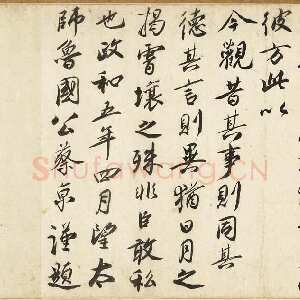 彼方此以
今觀昔其事則同其
德其言則異猶日月之
揭霄壤之殊非臣敢私
也政和五年四月望太
師魯國公蔡京謹題
Shufawang.CN